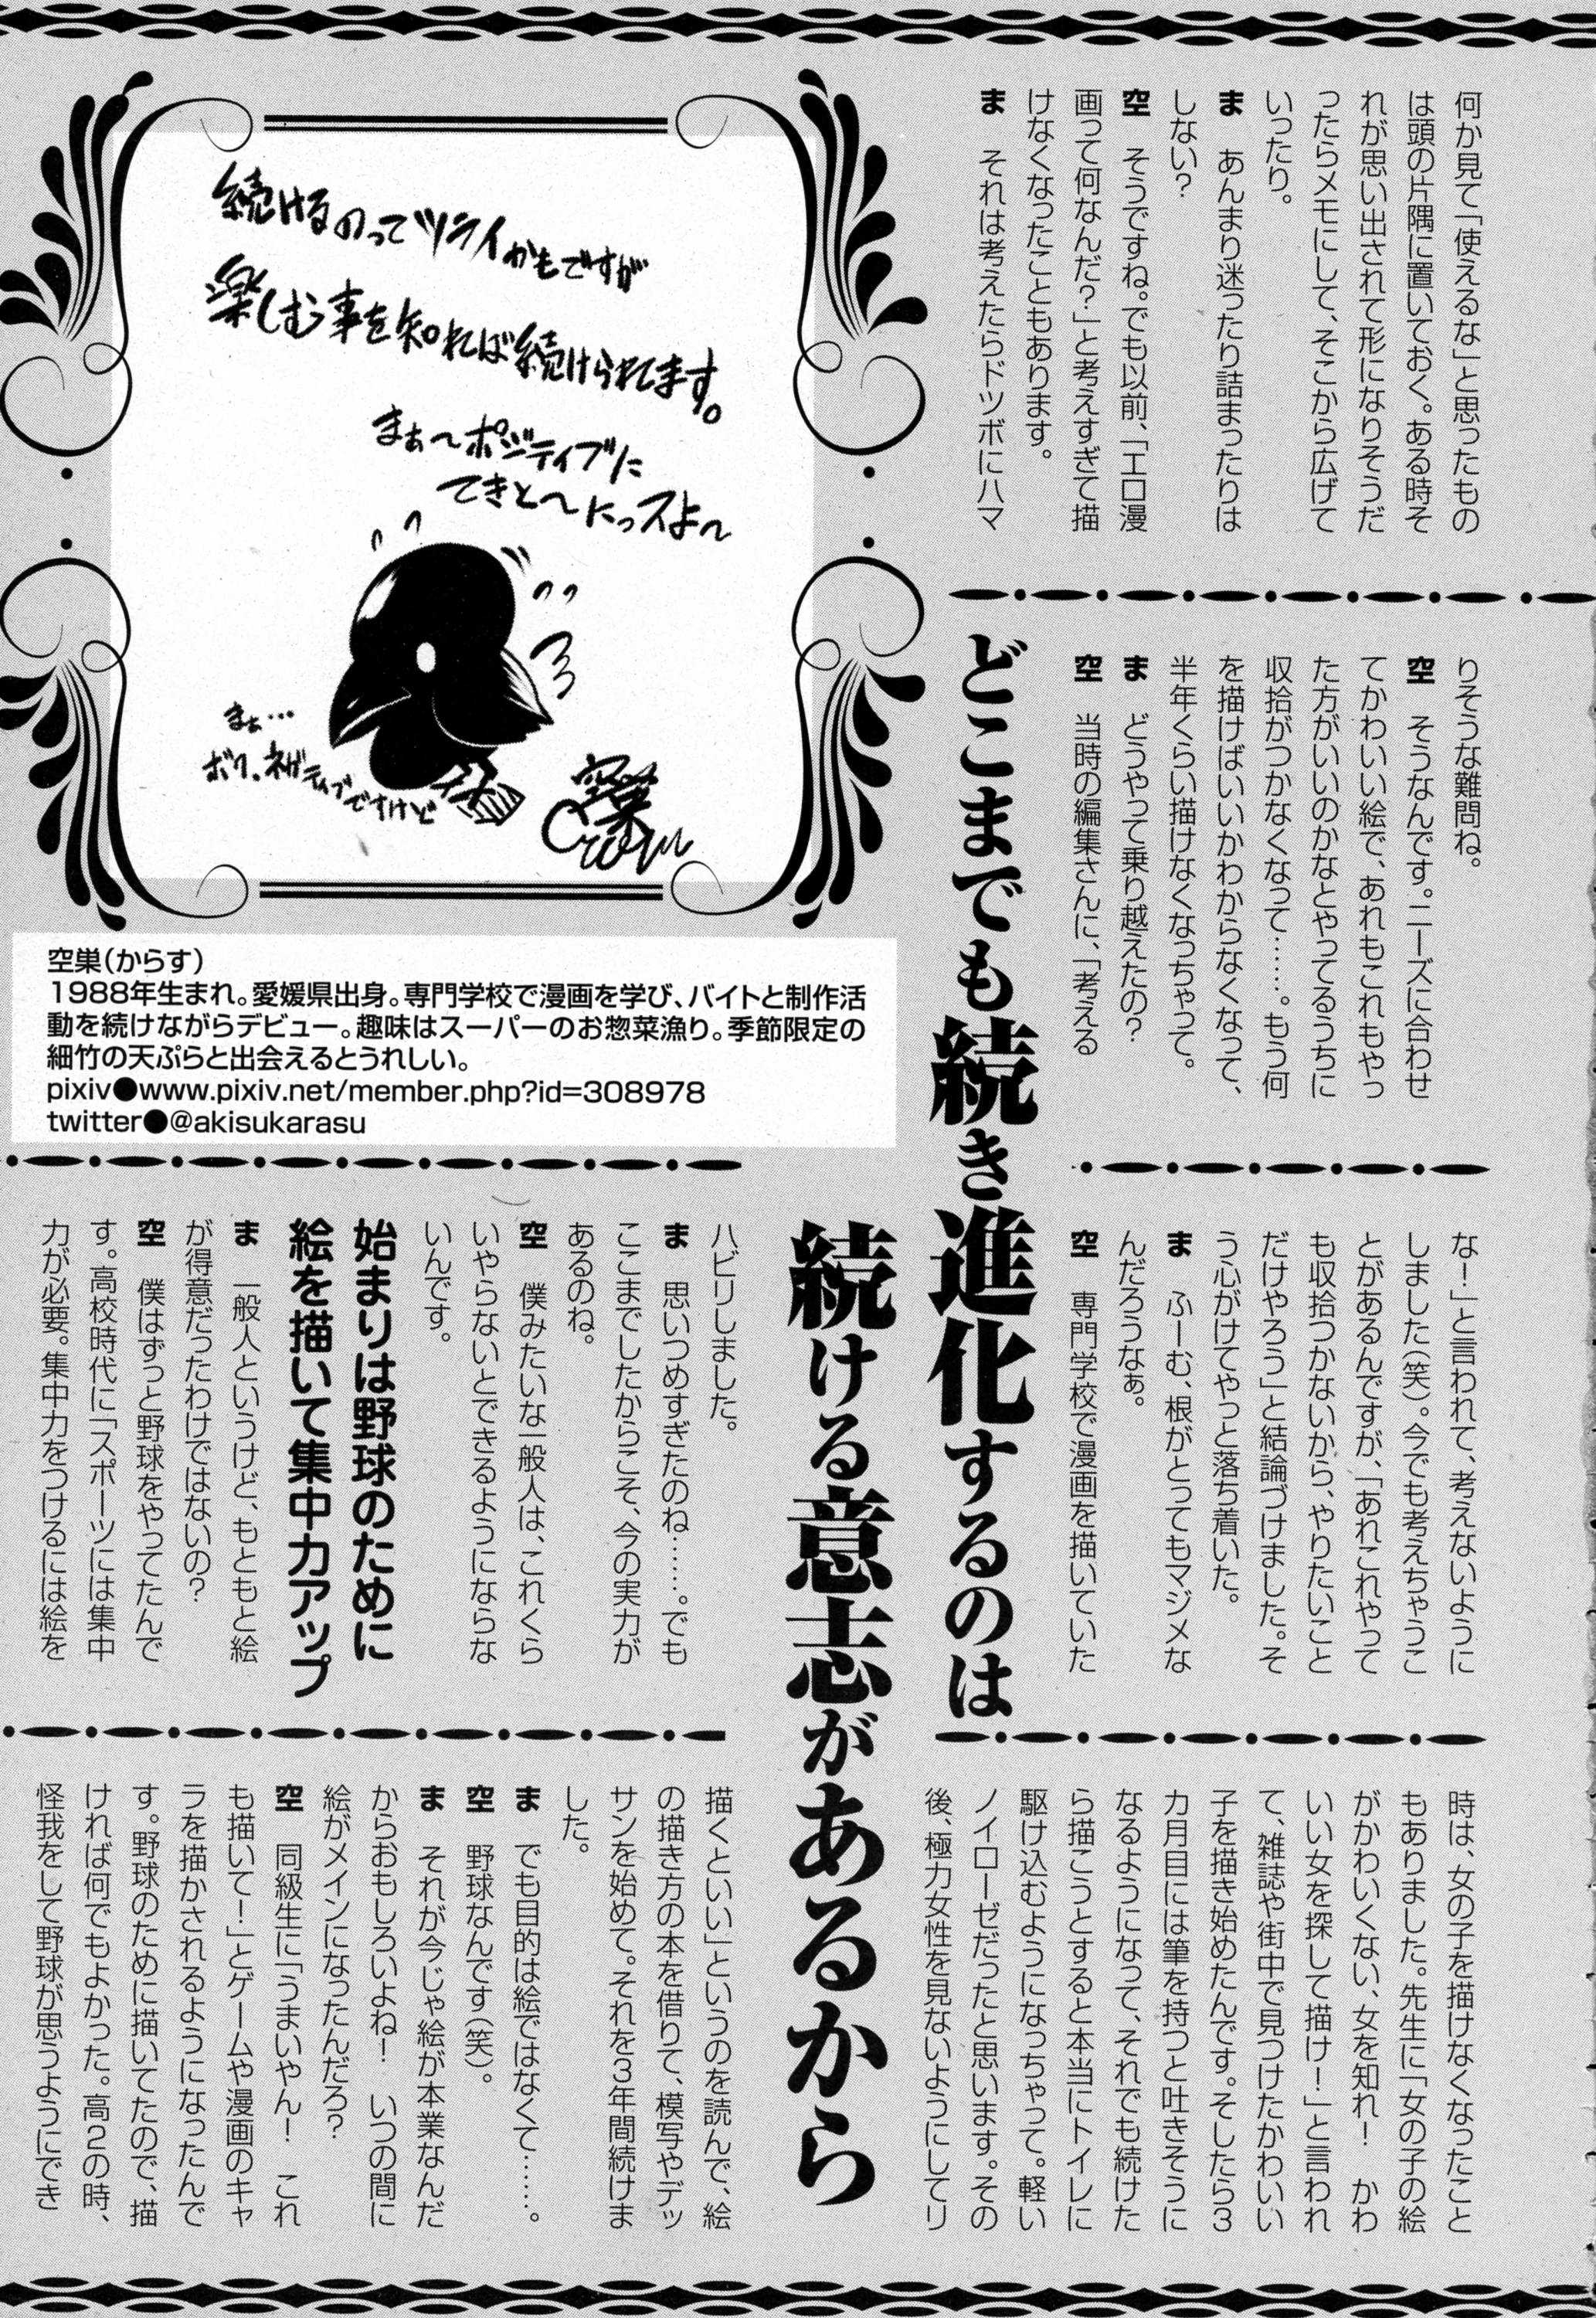 何か見て「使えるな」と思ったもの
は頭の片隅に置いておく。ある時そ
れが思い出されて形になりそうだ
ったらメモにして、そこから広げて
いったり。
ま　あんまり迷ったり詰まったりは
しない？
空　そうですね。でも以前、「エロ漫
画って何なんだ？」と考えすぎて描
けなくなったこともあります。
ま　それは考えたらドツボにハマ
りそうな難問ね。
空　そうなんです。ニーズに合わせ
てかわいい絵で、あれもこれもやっ
た方がいいのかなとやってるうちに
収拾がつかなくなって……。もう何
を描けばいいかわからなくなって、
半年くらい描けなくなっちゃって。
ま　どうやって乗り越えたの？
空　当時の編集さんに、「考える
な！」と言われて、考えないように
しました（笑）。今でも考えちゃうこ
とがあるんですが、「あれこれやって
も収拾つかないから、やりたいこと
だけやろう」と結論づけました。そ
う心がけてやっと落ち着いた。
ま　ふーむ、根がとってもマジメな
んだろうなぁ。
空　専門学校で漫画を描いていた
時は、女の子を描けなくなったこと
もありました。先生に「女の子の絵
がかわいくない、女を知れ！　かわ
いい女を探して描け！」と言われ
て、雑誌や街中で見つけたかわいい
子を描き始めたんです。そしたら3
カ月目には筆を持つと吐きそうに
なるようになって、それでも続けた
ら描こうとすると本当にトイレに
駆け込むようになっちゃって。軽い
ノイローゼだったと思います。その
後、極力女性を見ないようにしてリ
どこまでも続き進化するのは
続ける意志があるから
続けるのってツライかもですが
楽しむ事を知れば続けられてます。
まぁ〜ポジティブに
てきと〜にっスよ〜
まぁ…
ボク、ネガティブですけど
空巣
Crow
空巣（からす）
1988年生まれ。愛媛県出身。専門学校で漫画を学び、バイトと制作活
動を続けながらデビュー。趣味はスーパーのお惣菜漁り。季節限定の
細竹の天ぷらと出会えるとうれしい。
pixiv●www.pixiv.net/member.php?id=308978
twitter●@akisukarasu
ハビリしました。
ま　思いつめすぎたのね……。でも
ここまでしたからこそ、今の実力が
あるのね。
空　僕みたいな一般人は、これくら
いやらないとできるようにならな
いんです。
始まりは野球のために
絵を描いて集中力アップ
ま　一般人というけど、もともと絵
が得意だったわけではないの？
空　僕はずっと野球をやってたんで
す。高校時代に「スポーツには集中
力が必要。集中力をつけるには絵を
描くといい」というのを読んで、絵
の描き方の本を借りて、模写やデッ
サンを始めて。それを3年間続けま
した。
ま　でも目的は絵ではなくて……。
空　野球なんです（笑）。
ま　それが今じゃ絵が本業なんだ
からおもしろいよね！　いつの間に
絵がメインになったんだろ？
空　同級生に「うまいやん！　これ
も描いて！」とゲームや漫画のキャ
ラを描かされるようになったんで
す。野球のために描いてたので、描
ければ何でもよかった。高2の時、
怪我をして野球が思うようにでき